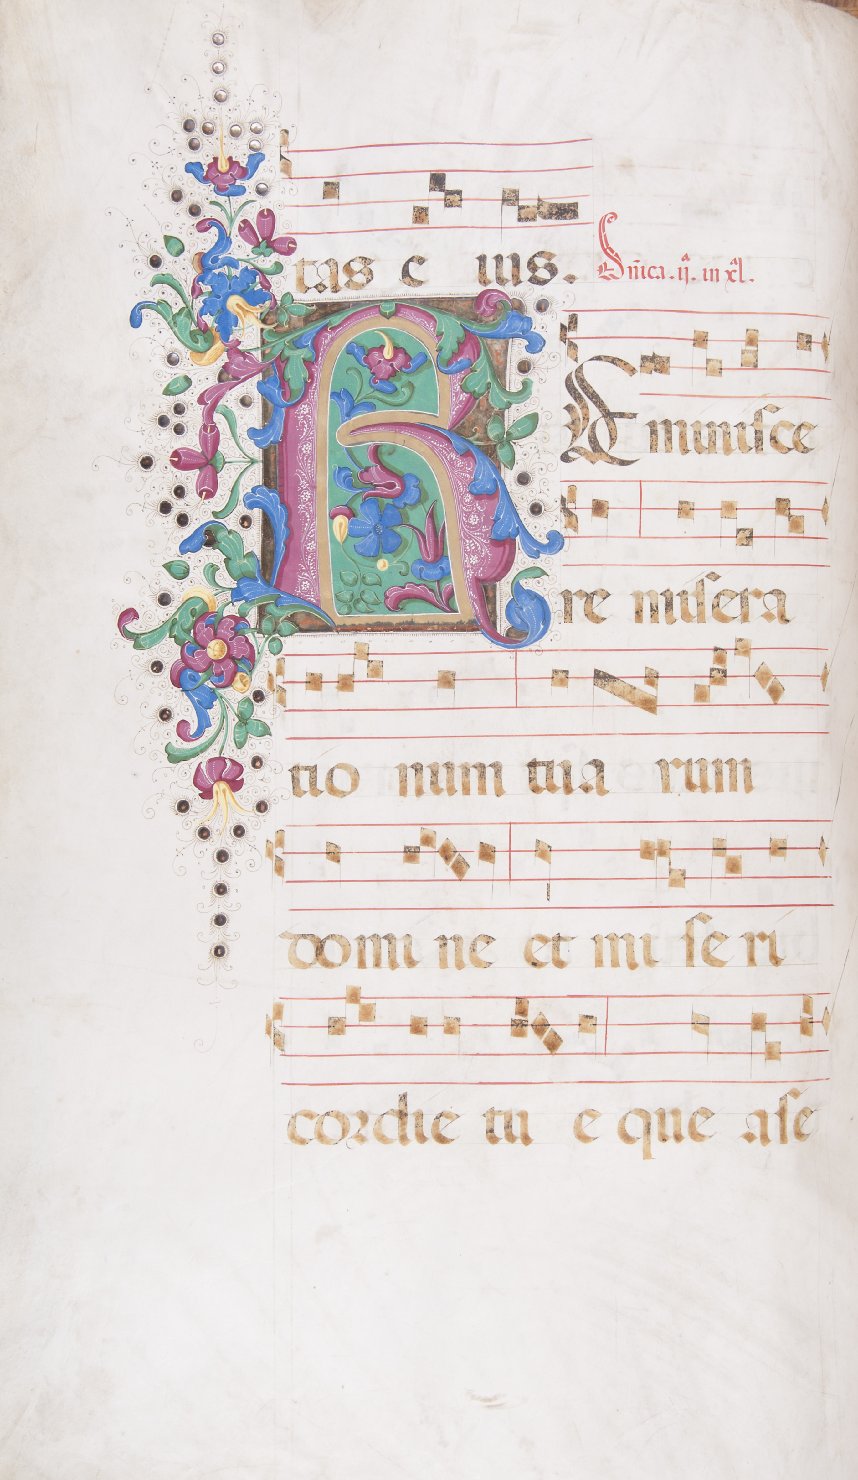 tas e ius. Dn̄ica. ij. in xl.
REminisce
re misera
tio num tua rum
domi ne et mi se ri
cordie tu e que a se